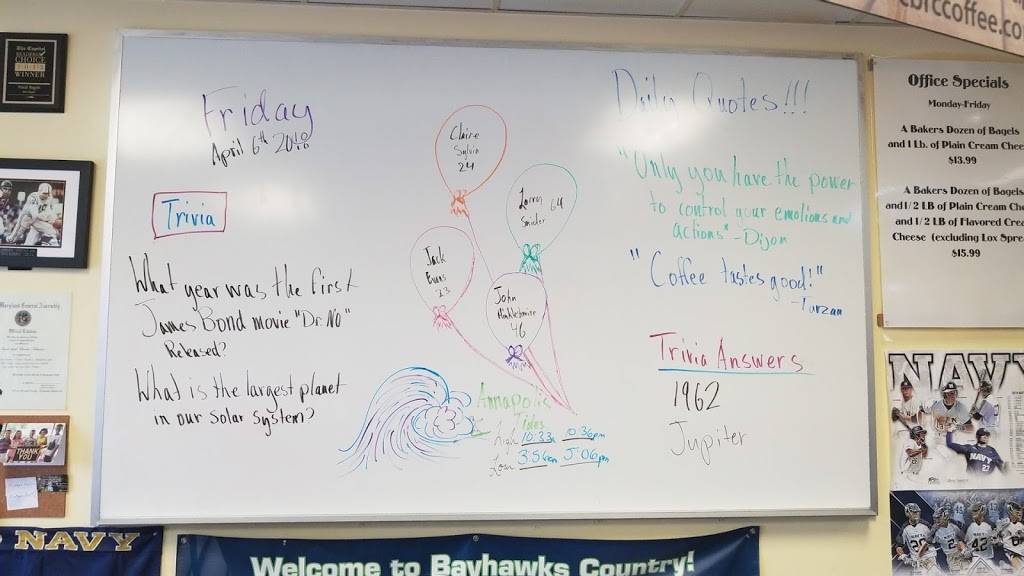 cbrccoffee.co
The Capital
READERS
CHOICE
WINNER
Friday
April 6th 2018
Trivia
What year was the first
James Bond movie "Dr. No"
Released?
What is the largest planet
in our solar system?
Claire
Sylvia
24
Larry 64
Snider
Jack
Evans
23
John
46
Annapolis
Tides
High 10:33a 10:36pm
Low 3:56am 5:06pm
Daily Quotes!!!
"Only you have the power
to control your emotions and
actions" - Dijon
"Coffee tastes good!"
- Tarzan
Trivia Answers
1962
Jupiter
Office Specials
Monday-Friday
A Bakers Dozen of Bagels
and 1 Lb. of Plain Cream Chee
$13.99
A Bakers Dozen of Bagels
and 1/2 LB of Plain Cream Ch
and 1/2 LB of Flavored Crea
Cheese (excluding Lox Spre
$15.99
NAVY
NAVY
27
Maryland General Assembly
THANK
YOU
NAVY
Welcome to Bayhawks Country!